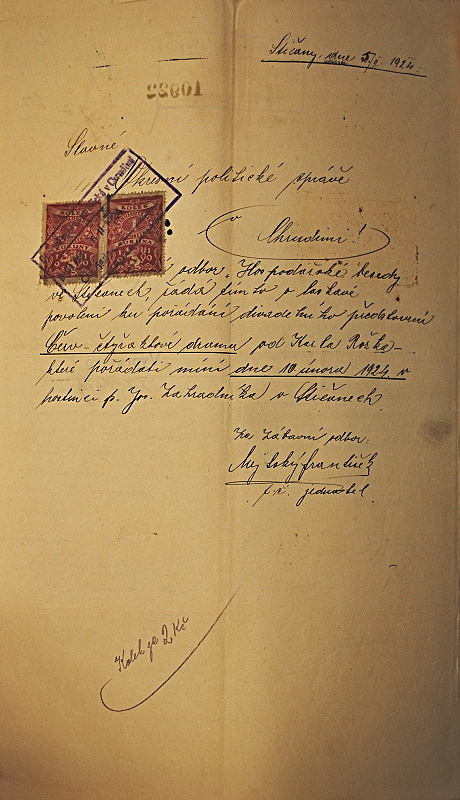 Stíčany, dne 5/2. 1924.
10922
Slavné
Okresní politické správě
v
Chrudimi!
odbor „Hospodářské besedy
ve Stíčanech, žádá tímto o laskavé
povolení ku pořádání divadelního představení
Červ - čtyřaktové drama od Karla Rožka -
které pořádati míní dne 10. února 1924 v
hostinci p. Jos. Zahradníka v Stíčanech.
Za zábavní odbor:
František
t.č. jednatel.
Kolek je 2 Kč
KOLEK
1
KORUNA
KOLEK
1
KORUNA
v Chrudimi